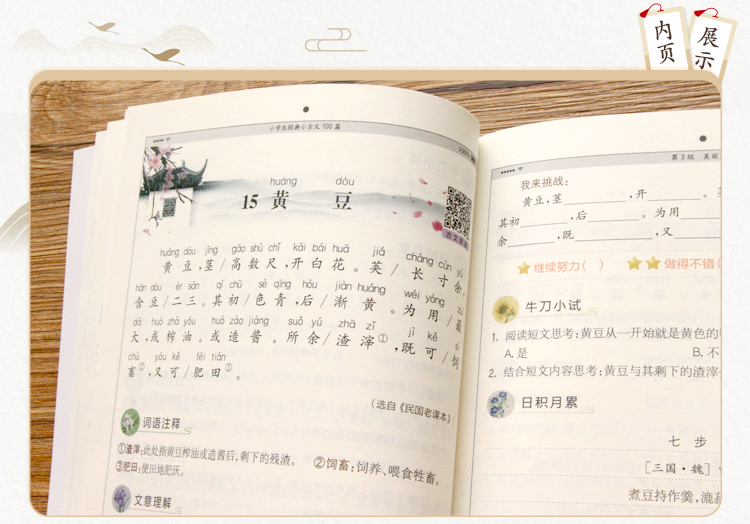 内页
展示
小学生经典小古文100篇
100%
huáng dòu
15 黄豆
古文诵读
huáng dòu jīng gāo shù chǐ kāi bái huā jiá cháng cùn yú
黄豆，茎/高数尺，开白花。荚/长寸余，
hán dòu èr sān qí chū sè qīng hòu jiàn huáng wéi yòng zuì
含豆/二三。其初/色青，后/渐黄。为用/最
dà huò zhà yóu huò zào jiàng suǒ yú zhā zǐ jì kě sì
大，或榨油。或造酱。所余/渣滓①，既可/饲
chù yòu kě féi tián
畜②，又可/肥田③。
（选自《民国老课本》）
词语注释
①渣滓：此处指黄豆榨油或造酱后，剩下的残渣。 ②饲畜：饲养、喂食牲畜。
③肥田：使田地肥沃。
文意理解
第3组 美丽
我来挑战：
黄豆，茎______，开______。
其初______，后______。为用______
余______，既______，又______
继续努力( ) 做得不错(
牛刀小试
1. 阅读短文思考：黄豆从一开始就是黄色的
A. 是 B. 不
2. 结合短文内容思考：黄豆与其剩下的渣滓
日积月累
七步
[三国·魏]
煮豆持作羹，漉菽